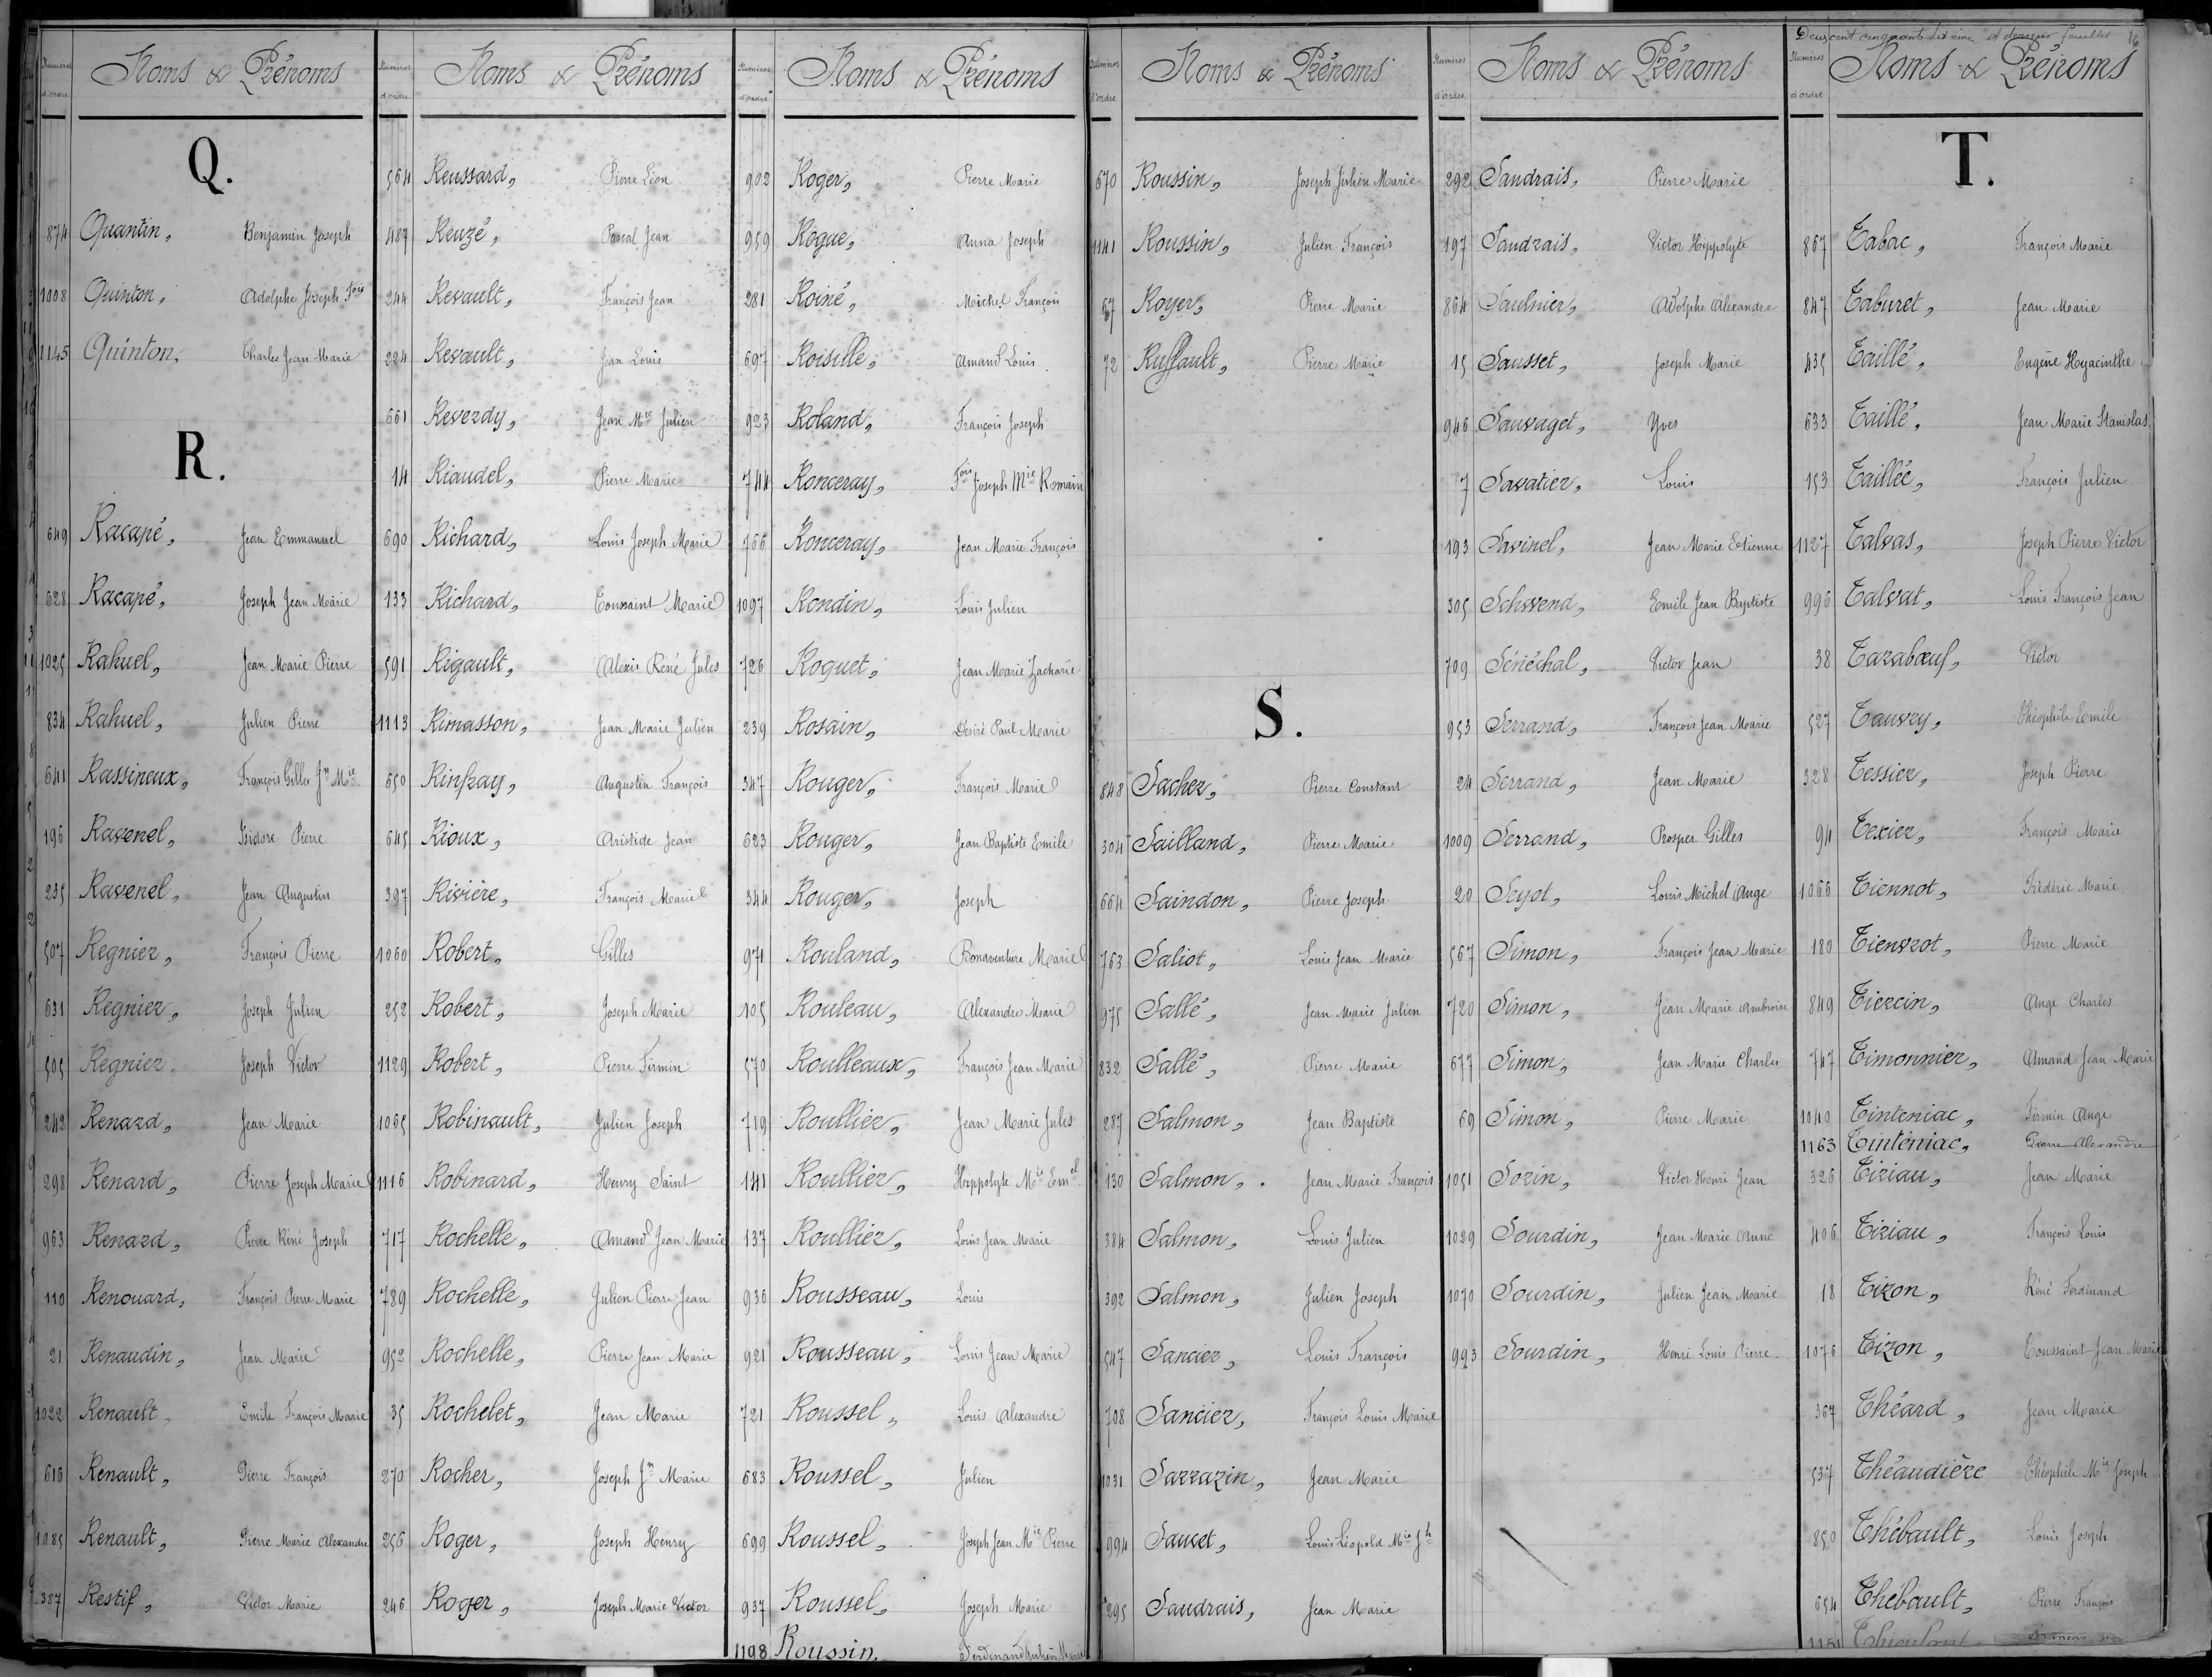 Deux cent cinquante dixième et dernier feuillet
Numéros d'ordre Noms & Prénoms
Q.
874 Quantin, Benjamin Joseph
1008 Quinton, Adolphe Joseph Fois
1145 Quinton, Charles Jean Marie
R.
649 Racapé, Jean Emmanuel
628 Racapé, Joseph Jean Marie
1025 Rahuel, Jean Marie Pierre
834 Rahuel, Julien Pierre
641 Rassineux, François Gilles Jn Mie
196 Ravenel, Isidore Pierre
235 Ravenel, Jean Augustin
507 Regnier, François Pierre
631 Regnier, Joseph Julien
505 Regnier, Joseph Victor
242 Renard, Jean Marie
298 Renard, Pierre Joseph Marie
963 Renard, Pierre Réné Joseph
110 Renouard, François Pierre Marie
21 Renaudin, Jean Marie
1022 Renault, Emile François Marie
616 Renault, Pierre François
1085 Renault, Pierre Marie Alexandre
387 Restif, Victor Marie
Numéros d'ordre Noms & Prénoms
564 Reussard, Pierre Léon
487 Reuzé, Pascal Jean
244 Revault, François Jean
224 Revault, Jean Louis
661 Reverdy, Jean Mie Julien
14 Riaudel, Pierre Marie
690 Richard, Louis Joseph Marie
133 Richard, Toussaint Marie
591 Rigault, Alexis René Jules
1113 Rimasson, Jean Marie Julien
650 Rinfray, Augustin François
645 Rioux, Aristide Jean
397 Rivière, François Marie
1060 Robert, Gilles
252 Robert, Joseph Marie
1129 Robert, Pierre Firmin
1065 Robinault, Julien Joseph
1116 Robinard, Henry Saint
717 Rochelle, Amand Jean Marie
789 Rochelle, Julien Pierre Jean
952 Rochelle, Pierre Jean Marie
35 Rochelet, Jean Marie
270 Rocher, Joseph Jn Marie
256 Roger, Joseph Henry
246 Roger, Joseph Marie Victor
Numéros d'ordre Noms & Prénoms
902 Roger, Pierre Marie
959 Rogue, Anna Joseph
281 Roiné, Michel François
697 Roisille, Amand Louis
923 Roland, François Joseph
744 Ronceray, Fois Joseph Mie Romain
766 Ronceray, Jean Marie François
1097 Rondin, Louis Julien
726 Roquet, Jean Marie Zacharie
239 Rosain, Désiré Paul Marie
347 Rouger, François Marie
623 Rouger, Jean Baptiste Emile
344 Rouger, Joseph
971 Rouland, Bonaventure Marie
105 Rouleau, Alexandre Marie
570 Roulleaux, François Jean Marie
719 Roullier, Jean Marie Jules
141 Roullier, Hippolyte Mie Emel
137 Roullier, Louis Jean Marie
936 Rousseau, Louis
921 Rousseau, Louis Jean Marie
721 Roussel, Louis Alexandre
683 Roussel, Julien
699 Roussel, Joseph Jean Mie Pierre
937 Roussel, Joseph Marie
1198 Roussin, Ferdinand Julien Marie
Numéros d'ordre Noms & Prénoms
670 Roussin, Joseph Julien Marie
1141 Roussin, Julien François
67 Royer, Pierre Marie
72 Ruffault, Pierre Marie
S.
848 Sacher, Pierre Constant
304 Sailland, Pierre Marie
664 Saindon, Pierre Joseph
763 Saliot, Louis Jean Marie
975 Sallé, Jean Marie Julien
832 Sallé, Pierre Marie
287 Salmon, Jean Baptiste
130 Salmon, Jean Marie François
384 Salmon, Louis Julien
392 Salmon, Julien Joseph
547 Sancier, Louis François
708 Sancier, François Louis Marie
1031 Sarrazin, Jean Marie
994 Saucet, Louis Léopold Mie Jh
295 Saudrais, Jean Marie
Numéros d'ordre Noms & Prénoms
292 Saudrais, Pierre Marie
197 Saudrais, Victor Hippolyte
864 Saulnier, Adolphe Alexandre
15 Sausset, Joseph Marie
946 Sauvaget, Yves
7 Savatier, Louis
193 Savinel, Jean Marie Etienne
305 Schwend, Emile Jean Baptiste
709 Sénéchal, Victor Jean
953 Serrand, François Jean Marie
24 Serrand, Jean Marie
1009 Serrand, Prosper Gilles
20 Seyot, Louis Michel Ange
567 Simon, François Jean Marie
720 Simon, Jean Marie Ambroise
677 Simon, Jean Marie Charles
69 Simon, Pierre Marie
1051 Sorin, Victor Henri Jean
1029 Sourdin, Jean Marie Anne
1070 Sourdin, Julien Jean Marie
993 Sourdin, Henri Louis Pierre
Numéros d'ordre Noms & Prénoms
T.
867 Tabac, François Marie
847 Taburet, Jean Marie
435 Taillé, Eugène Hyacinthe
633 Taillé, Jean Marie Stanislas
153 Taillée, François Julien
1127 Talvas, Joseph Pierre Victor
996 Talvat, Louis François Jean
38 Tarabœuf, Victor
527 Tauvry, Théophile Emile
328 Tessier, Joseph Pierre
94 Texier, François Marie
1066 Tiennot, Frédéric Marie
180 Tienvrot, Pierre Marie
849 Tiercin, Ange Charles
747 Timonnier, Amand Jean Marie
1040 Tinteniac, Firmin Ange
1163 Tinténiac, Pierre Alexandre
326 Tiriau, Jean Marie
406 Tiriau, François Louis
18 Tizon, Réné Ferdinand
1076 Tizon, Toussaint Jean Marie
367 Théard, Jean Marie
537 Théaudière Théophile Mie Joseph
850 Thébault, Louis Joseph
654 Thébault, Pierre François
1151